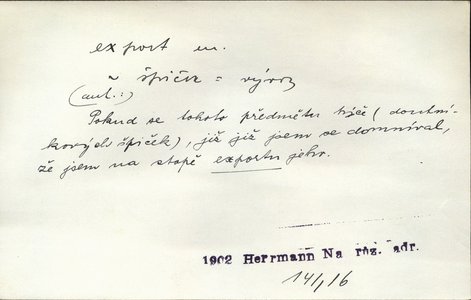 export m.
~ špiček = vývoz
(aut.:)
Pokud se tohoto předmětu týče (doutní-
kových špiček), již již jsem se domníval,
že jsem na stopě exportu jeho.
1902 Herrmann Na růz. adr.
141, 16